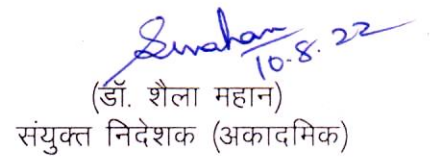 Smahan
10.8.22
(डॉ. शैला महान)
संयुक्त निदेशक (अकादमिक)